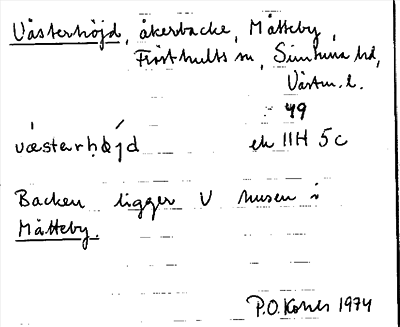 Västerhöjd, åkerbacke, Måtteby,
Frösthults sn, Simtuna hd,
Västm. l.
49
væstərhǿ̣jd ek 11H 5c
Backen ligger V husen i
Måtteby.
P.O. 1974